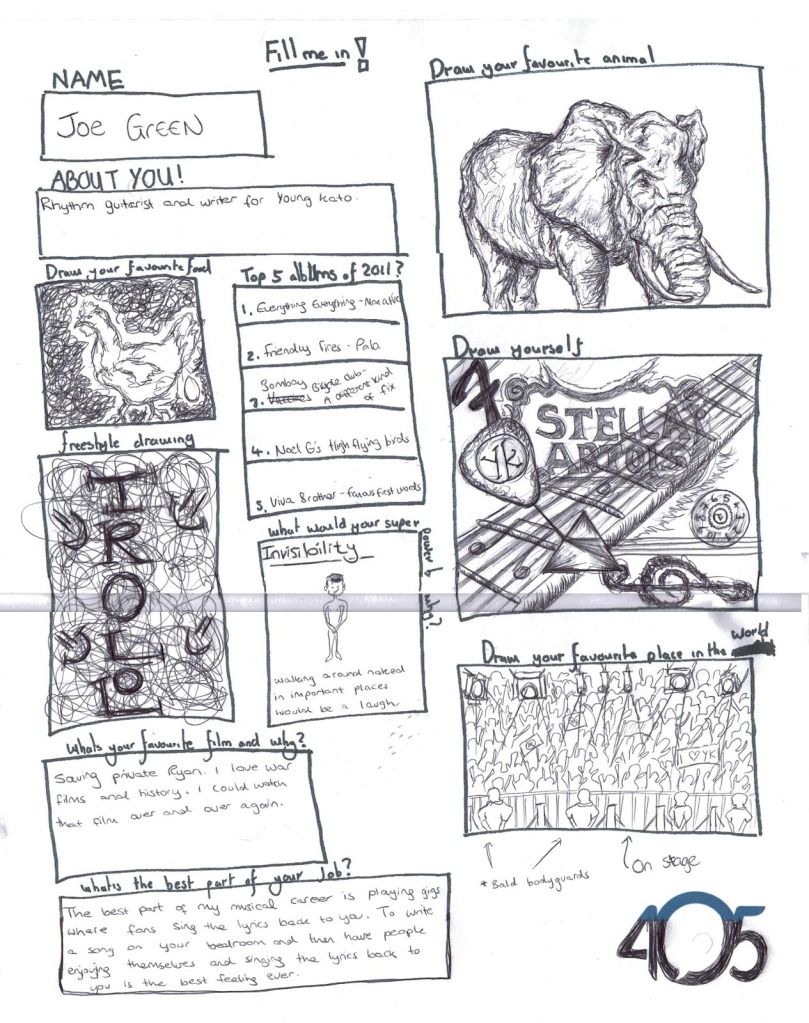 Fill me in!
NAME
Joe GREEN
ABOUT YOU!
Rhythm guitarist and writer for Young Kato.
Draw your favourite food
Top 5 albums of 2011?
1. Everything Everything - Man alive
2. Friendly Fires - Pala
Bombay Bicycle club -
3. Vaccines A different kind
of fix
4. Noel G's High flying birds
5. Viva Brother - Famous first words
freestyle drawing
TROLOLO
what would your super
power b why?
Invisibility
walking around naked
in important places
would be a laugh
Whats your favourite film and why?
Saving private Ryan. I love war
films and history. I could watch
that film over and over again.
whats the best part of your Job?
The best part of my musical career is playing gigs
where fans sing the lyrics back to you. To write
a song on your bedroom and then have people
enjoying themselves and singing the lyrics back to
you is the best feeling ever.
Draw your favourite animal
Draw yourself
STELLA
ARTOIS
YK
Draw your favourite place in the world
I ♡ YK
* Bald bodyguards
On stage
405